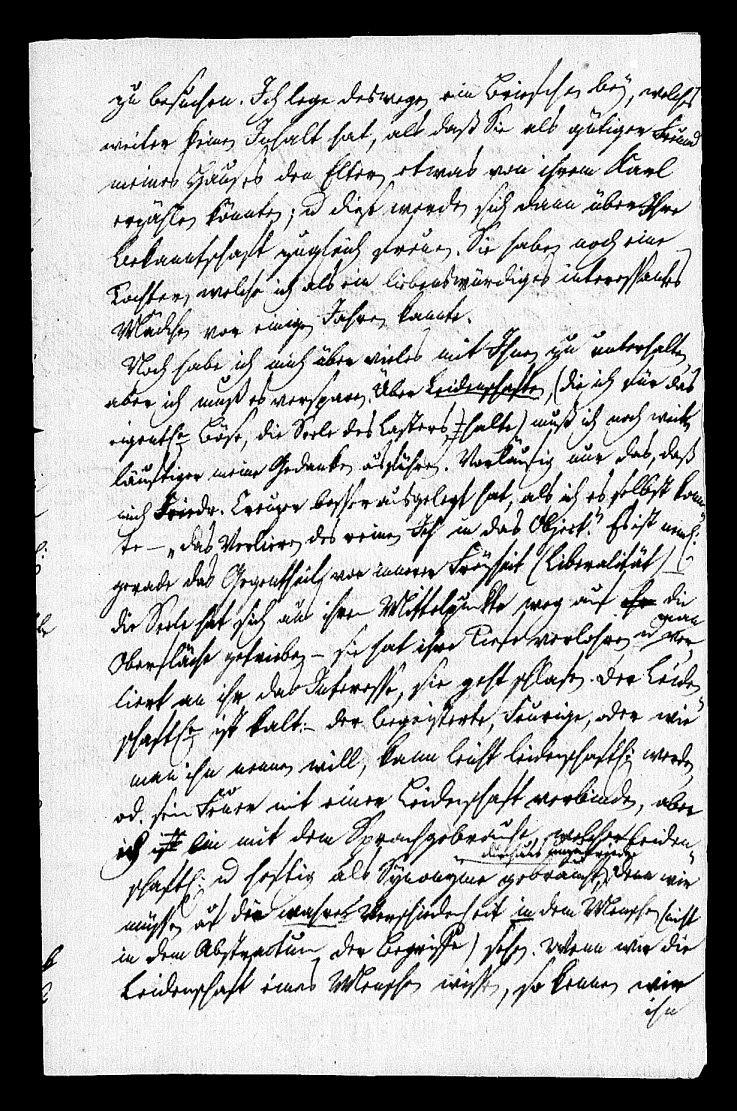 zu besuchen. Ich lege deswegen ein Briefchen bey, welches
weiter keinen Inhalt hat, als daß Sie als gütiger Freund
meines Hauses den Eltern etwas von ihrem Karl
erzählen könnten; u diese werden sich dann über Ihre
Bekanntschaft zugleich freuen. Sie haben noch eine
Tochter, welche ich als ein liebenswürdiges interessantes
Mädchen vor einigen Jahren kannte.
Noch habe ich mich über vieles mit Ihnen zu unterhalten,
aber ich muß es versparen. Über Leidenschaften, (die ich für das
eigentl. Böse, die Seele des Lasters halte) muß ich noch weit
läuftiger meine Gedanken ausführen. Vorläufig nur das, daß
mich Friedr. Creuzer besser ausgelegt hat, als ich es selbst konn
te – „das Verlieren des reinen Ich in das Object." Es ist neml.
gerade das Gegentheil von innerer Freyheit (Liberalität)
die Seele hat sich aus ihrem Mittelpunkte weg auf die
Oberfläche getrieben – sie hat ihre Tiefe verlohren u man ver
liert an ihr das Interesse, sie geht schlafen. Der Leiden
schaftl. ist kalt. – der Begeisterte, Feurige, oder wie
man ihn nennen will, kann leicht leidenschaftl. werden,
od. sein Feuer mit einer Leidenschaft verbinden, aber
ich bin mit dem Sprachgebrauche, welcher leiden
schaftl. u heftig als Synonyme gebraucht, durchaus unzufrieden
denn wir
müssen auf die wahre Verschiedenheit in dem Menschen (nicht
in dem Abstractum der Begriffe) sehen. Wenn wir die
Leidenschaft eines Menschen wissen, so kennen wir
ihn